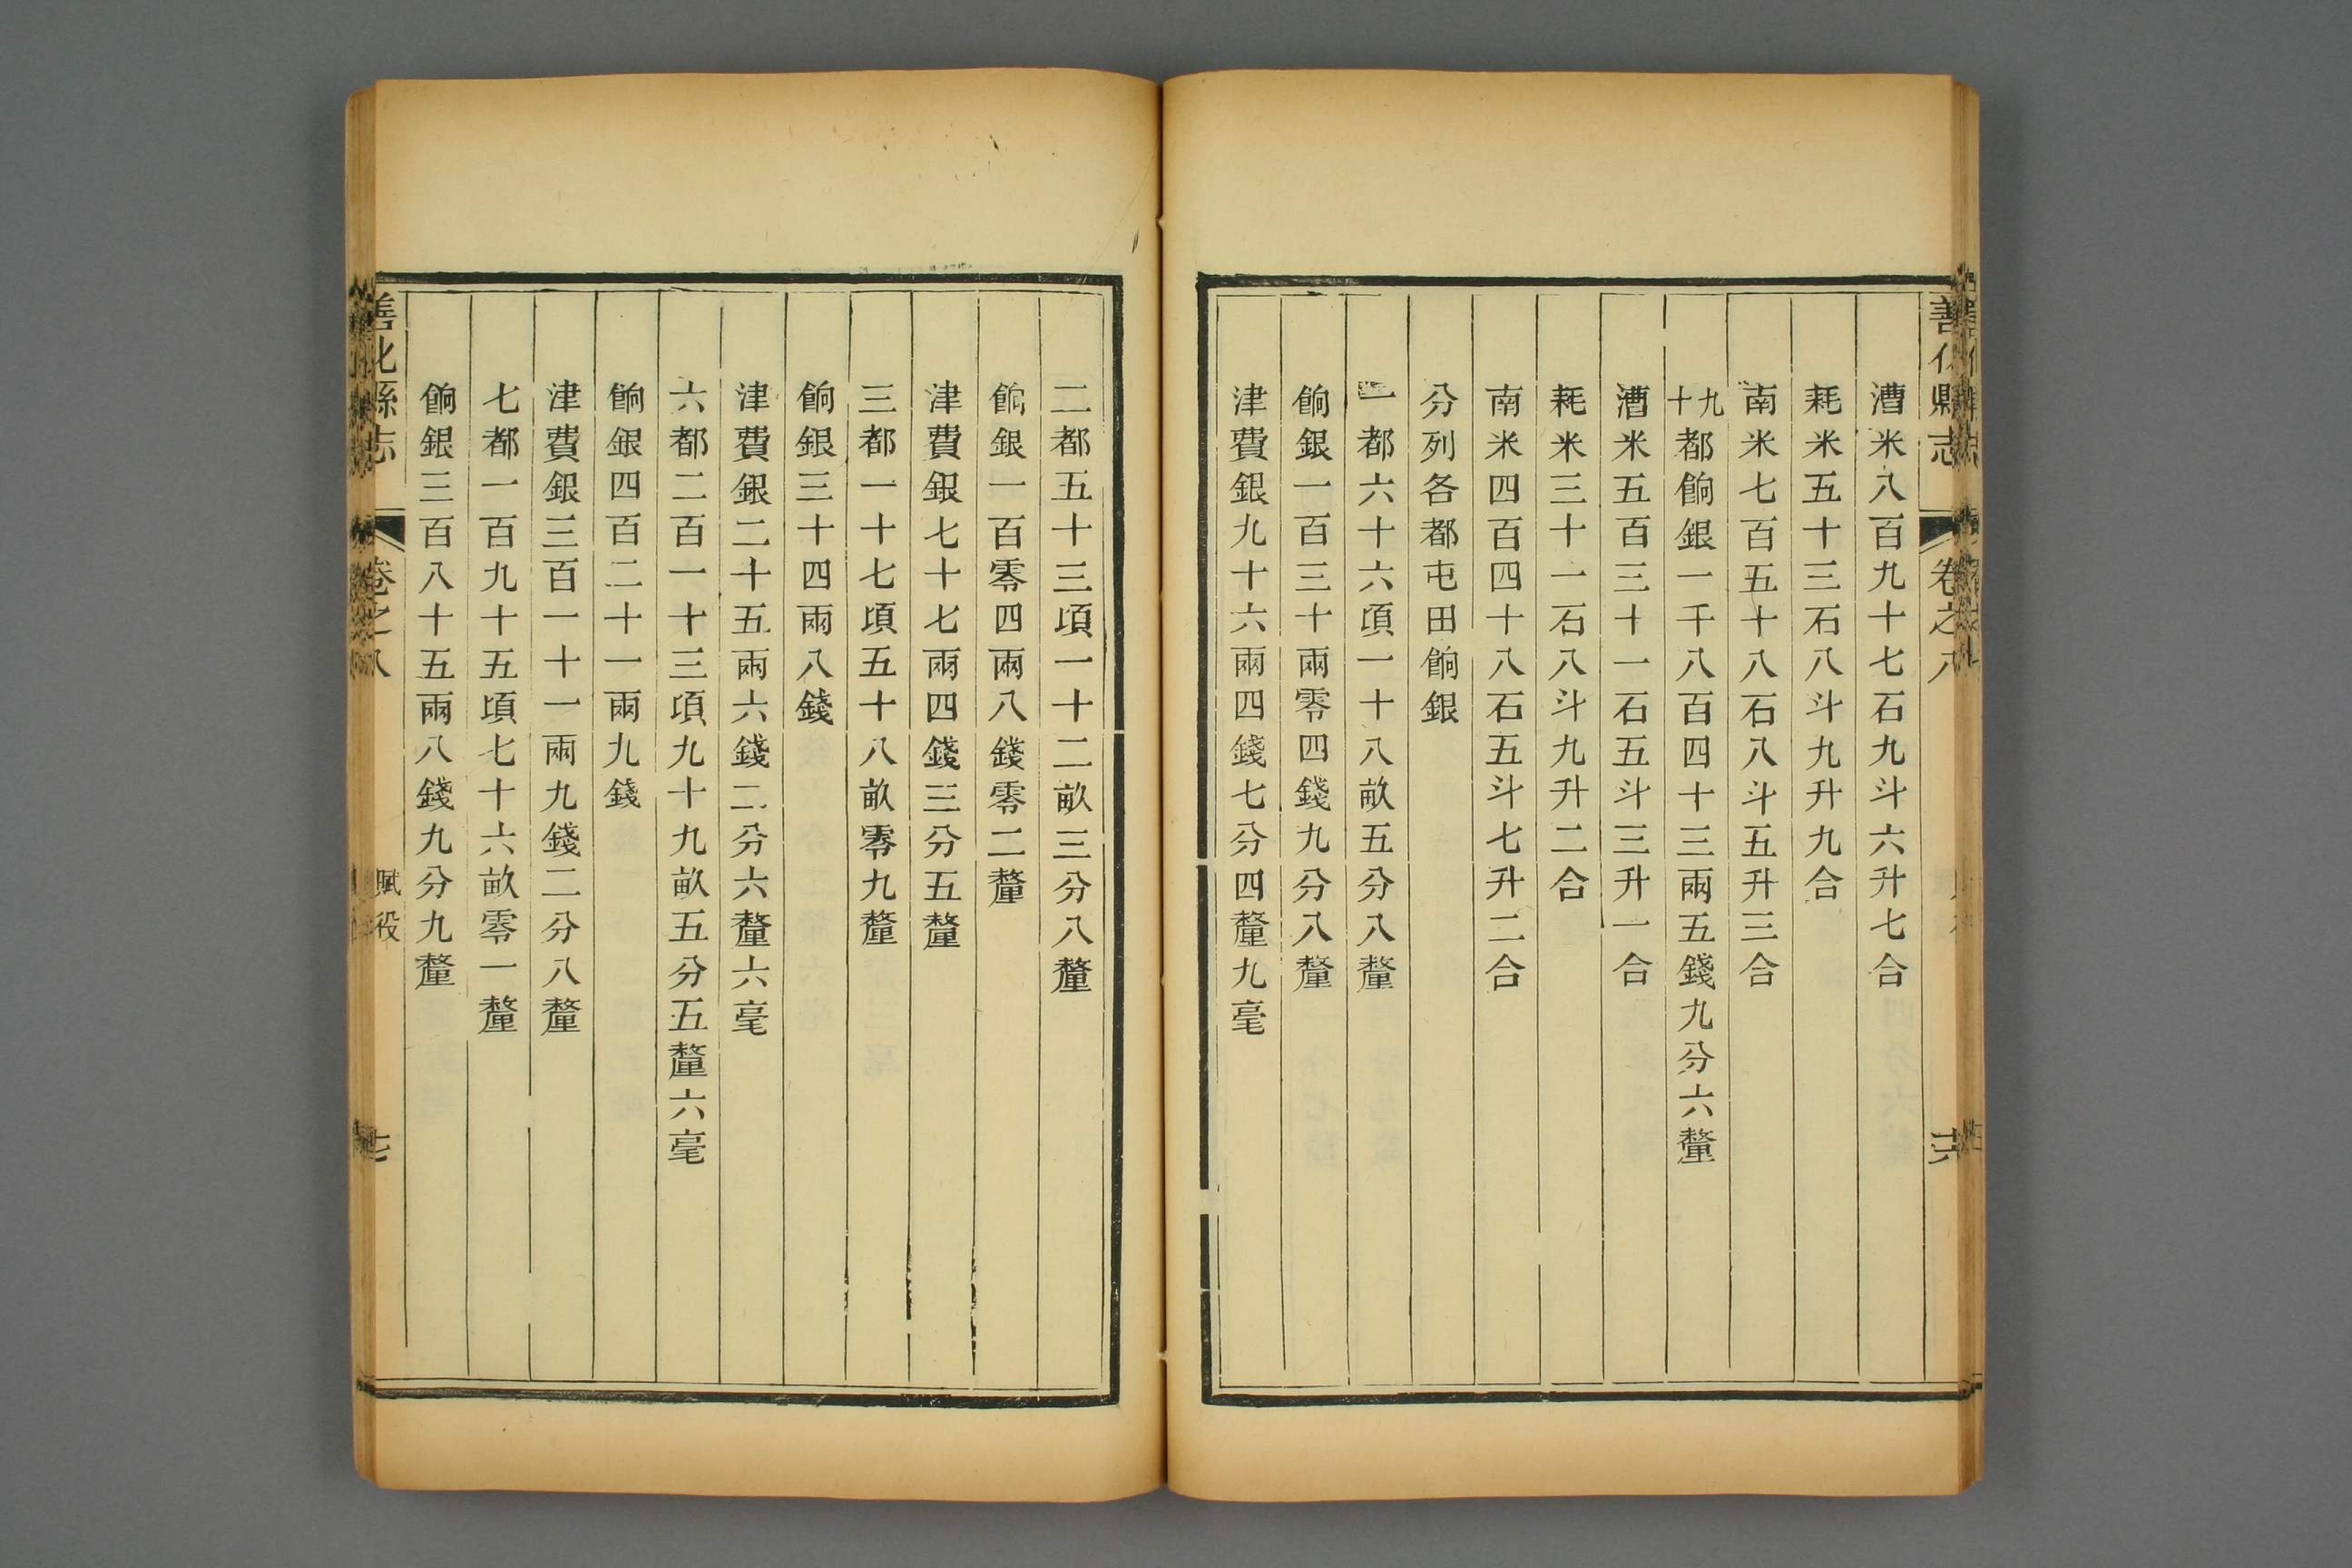 善化縣志
卷之八
漕米八百九十七石九斗六升七合
耗米五十三石八斗九升九合
南米七百五十八石八斗五升三合
九十都餉銀一千八百四十三兩五錢九分六釐
漕米五百三十一石五斗三升一合
耗米三十一石八斗九升二合
南米四百四十八石五斗七升二合
分列各都屯田餉銀
一都六十六頃一十八畝五分八釐
餉銀一百三十兩零四錢九分八釐
津費銀九十六兩四錢七分四釐九毫
二都五十三頃一十二畝三分八釐
餉銀一百零四兩八錢零二釐
津費銀七十七兩四錢三分五釐
三都一十七頃五十八畝零九釐
餉銀三十四兩八錢
津費銀二十五兩六錢二分六釐六毫
六都二百一十三頃九十九畝五分五釐六毫
餉銀四百二十一兩九錢
津費銀三百一十一兩九錢二分八釐
七都一百九十五頃七十六畝零一釐
餉銀三百八十五兩八錢九分九釐
善化縣志
卷之八
賦役